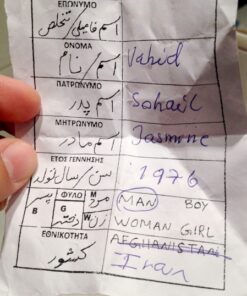 ΕΠΩΝΥΜΟ
اسم فامیلی/تخلص
ΟΝΟΜΑ
اسم/نام Vahid
ΠΑΤΡΩΝΥΜΟ
اسم پدر Sohail
ΜΗΤΡΩΝΥΜΟ
اسم مادر Jasmine
ΕΤΟΣ ΓΕΝΝΗΣΗΣ
سن/سال تولد 1976
ΦΥΛΟ M MAN BOY
پسر B G دختر مرد W زن WOMAN GIRL
ΕΘΝΙΚΟΤΗΤΑ AFGHANISTAN
کشور Iran